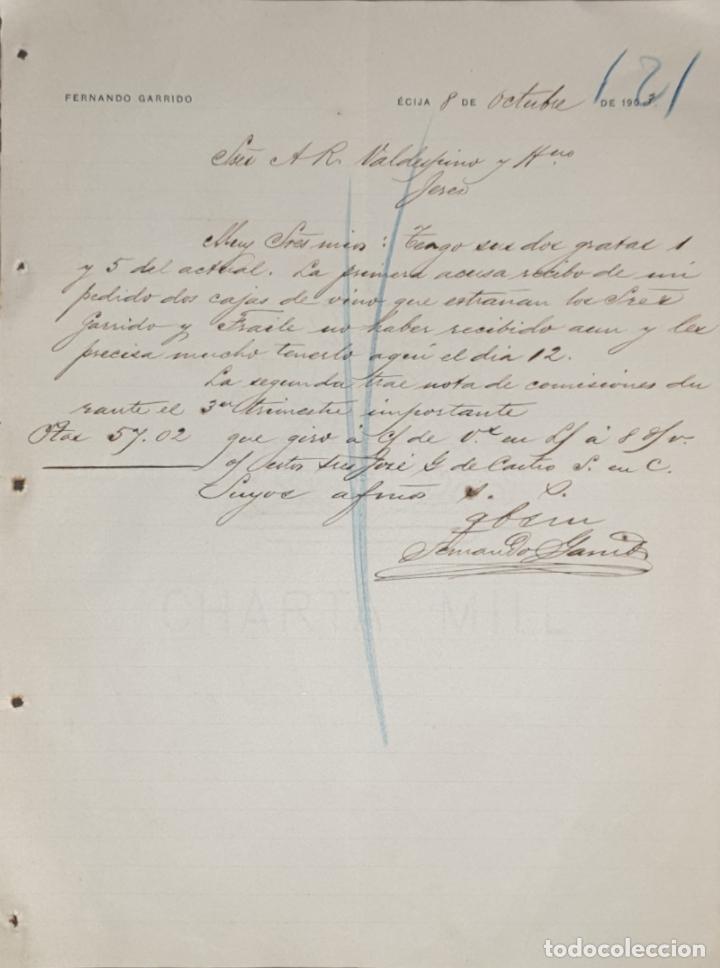 121
FERNANDO GARRIDO
ÉCIJA 8 DE Octubre DE 1903
Sres A R. Valdespino y Hno
Jerez
Muy Sres mios: Tengo sus dos gratas 1
y 5 del actual. La primera acusa recibo de mi
pedido dos cajas de vino que estrañan los Sres
Garrido y Fraile no haber recibido aun y les
precisa mucho tenerlo aqui el dia 12.
La segunda trae nota de comisiones du
rante el 3er trimestre importante
Ptas 57.02 que giro á c/ de Vs en L/ á 8 d/v.
o/ estos Sres José G de Castro S. en C.
Suyos afmos s. s.
q b s m
Fernando Garrido
CHARTA MILL
todocoleccion
todocoleccion.net